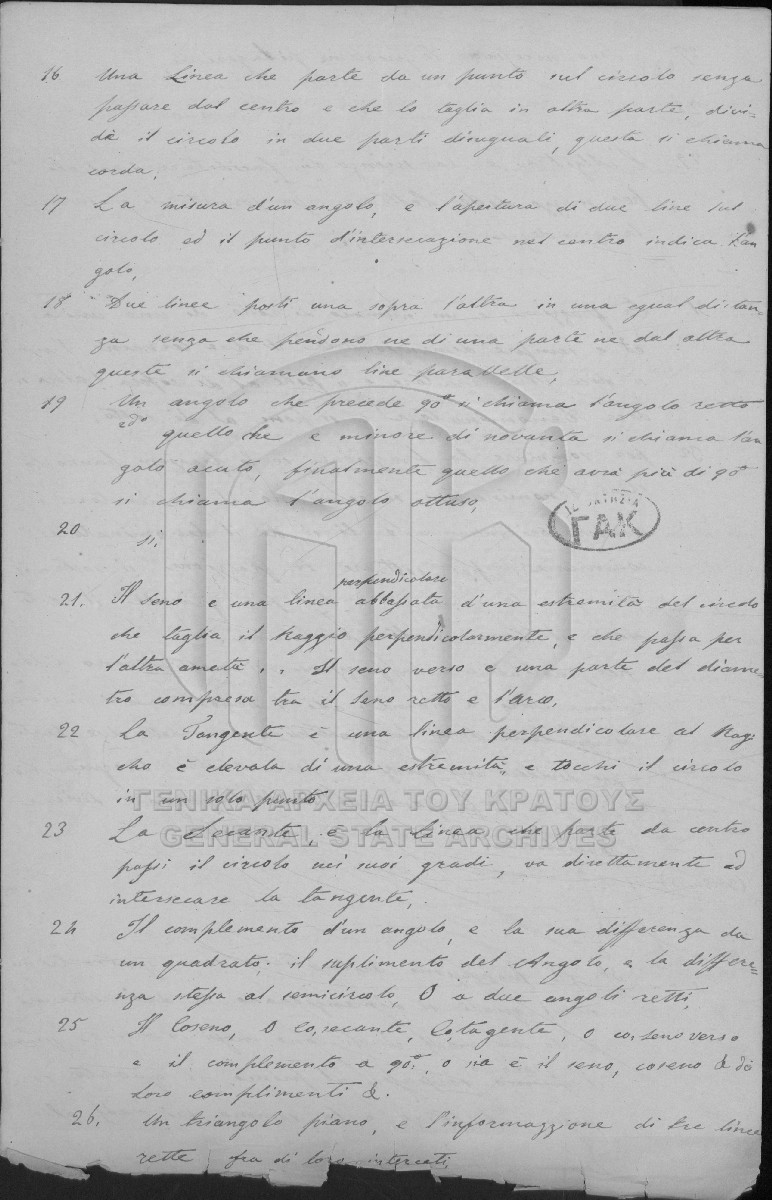 16 Una Linea che parte da un punto sul circolo senza
passare dal centro e che lo taglia in altra parte, divi-
de il circolo in due parti disuguali, questa si chiama
corda.
17 La misura d'un angolo, e l'apertura di due line sul
circolo ed il punto d'intersecazione nel centro indica l'an
golo,
18 Due linee posti una sopra l'altra in una egual distan-
za senza che pendono ne di una parte ne dal altra
queste si chiamano line paradelle,
19 Un angolo che precede 90° si chiama l'angolo retto
quello che e minore di novanta si chiama l'an
golo acuto, finalmente quello che avrà più di 90°
si chiama l'angolo ottuso,
20 si.
perpendicolare
21. Il seno e una linea abbassata d'una estremità del circolo
che taglia il Raggio perpendicolarmente, e che passa per
l'altra ametà . . Il seno verso e una parte del diame-
tro compresa tra il seno retto e l'arco,
22 La Tangente è una linea perpendicolare al Rag-
cho è elevata di una estremità, e tocchi il circolo
in un solo punto
23 La Secante, è la linea che parte da centro
passi il circolo nei suoi gradi, va direttamente ad
intersecare la tangente,.
24 Il complemento d'un angolo, e la sua differenza da
un quadrato; il suplimento del Angolo, e la differe-
nza stessa al semicircolo, O a due angoli retti,
25 Il Coseno, O Cosecante, Cotagente, o coseno verso
e il complemento a 90°, o sia è il seno, coseno & di
loro complimenti &.
26. Un triangolo piano, e l'informazzione di tre linee
rette fra di loro intercati
ΓΑΚ
ΓΕΝΙΚΑ ΑΡΧΕΙΑ ΤΟΥ ΚΡΑΤΟΥΣ
GENERAL STATE ARCHIVES